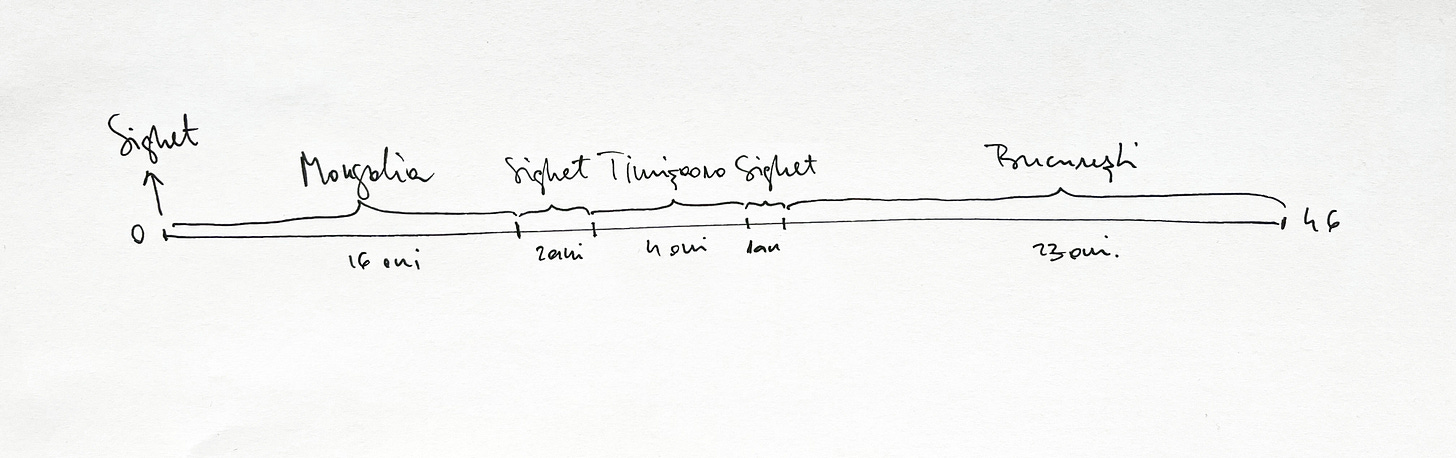 Sighet
Mongolia Sighet Timișoara Sighet București
0 46
16 ani 2 ani 4 ani 1 an 23 ani.